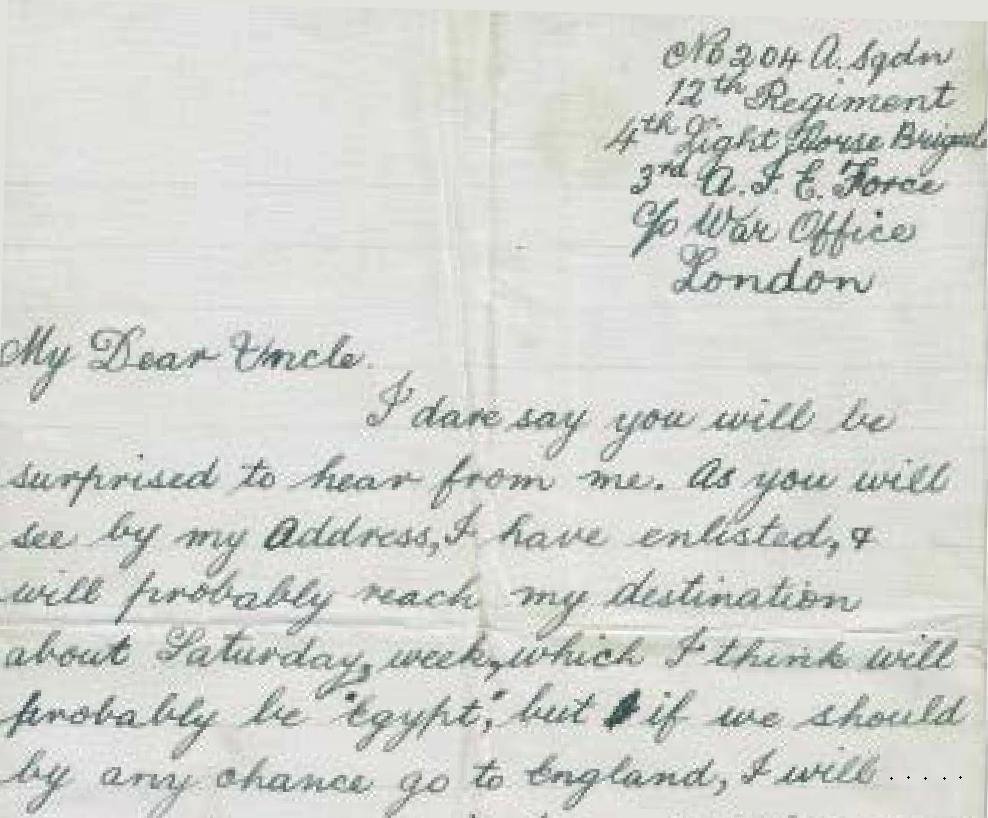 No 204 A. Sqdn
12th Regiment
4th Light Horse Brigade
3rd A. I. E. Force
c/o War Office
London
My Dear Uncle.
I dare say you will be
surprised to hear from me. As you will
see by my Address, I have enlisted, &
will probably reach my destination
about Saturday, week, which I think will
probably be "Egypt", but if we should
by any chance go to England, I will .....